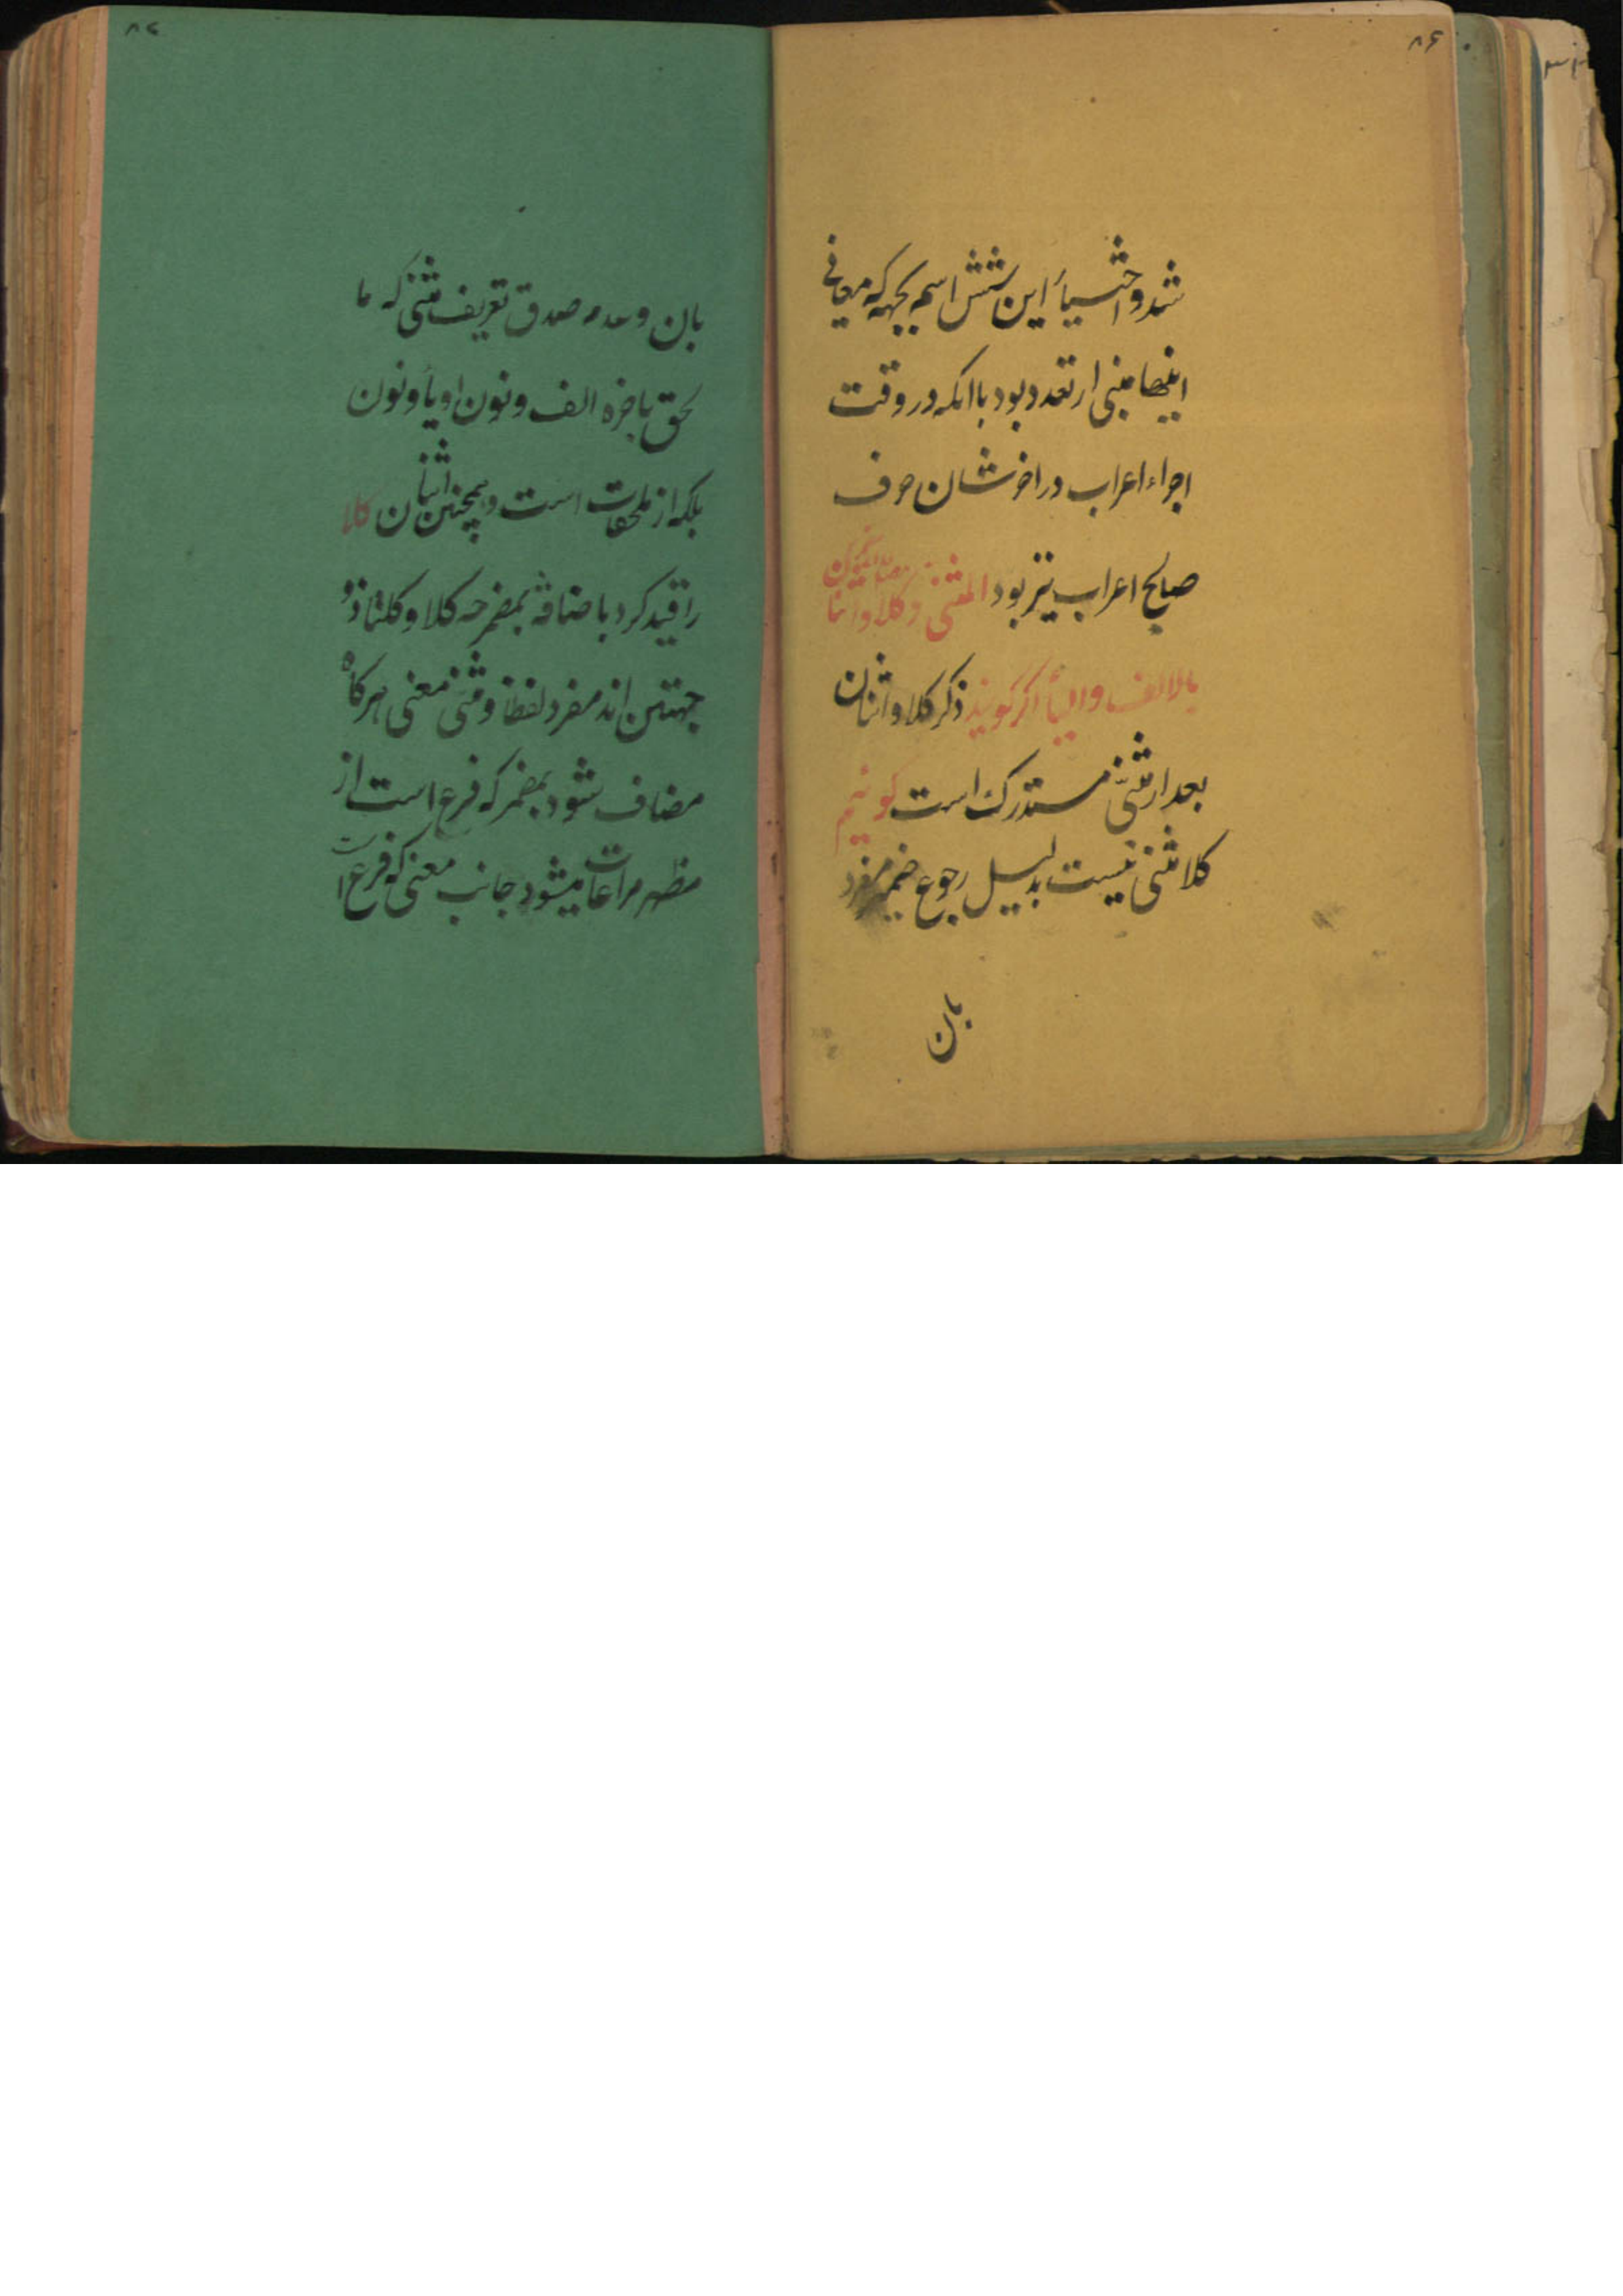 ۸۶
شد و اختیار این شش اسم بجهه که معانی
اینها مبنی از تعدد بود با انکه در وقت
اجراء اعراب در اخرشان حرف
صالح اعراب نیز بود المثنی و کلا واثنا
بالالف والیأ اکر کویند ذکر کلا واثنان
بعد از مثنی مستدرک است کوئیم
کلا مثنی نیست بدلیل رجوع ضمیر مفرد
بان
بان و عدم صدق تعریف مثنی که ما
لحق باخره الف و نون او یأ و نون
بلکه از ملحقات است و همچنین اثنان کلا
را قید کرد باضافه بمضمر چه کلا و کلتا ذو
جهتین اند مفرد لفظا و مثنی معنی هرکاه
مضاف شود بمضمر که فرع است از
مظهر مراعات میشود جانب معنی که فرع است